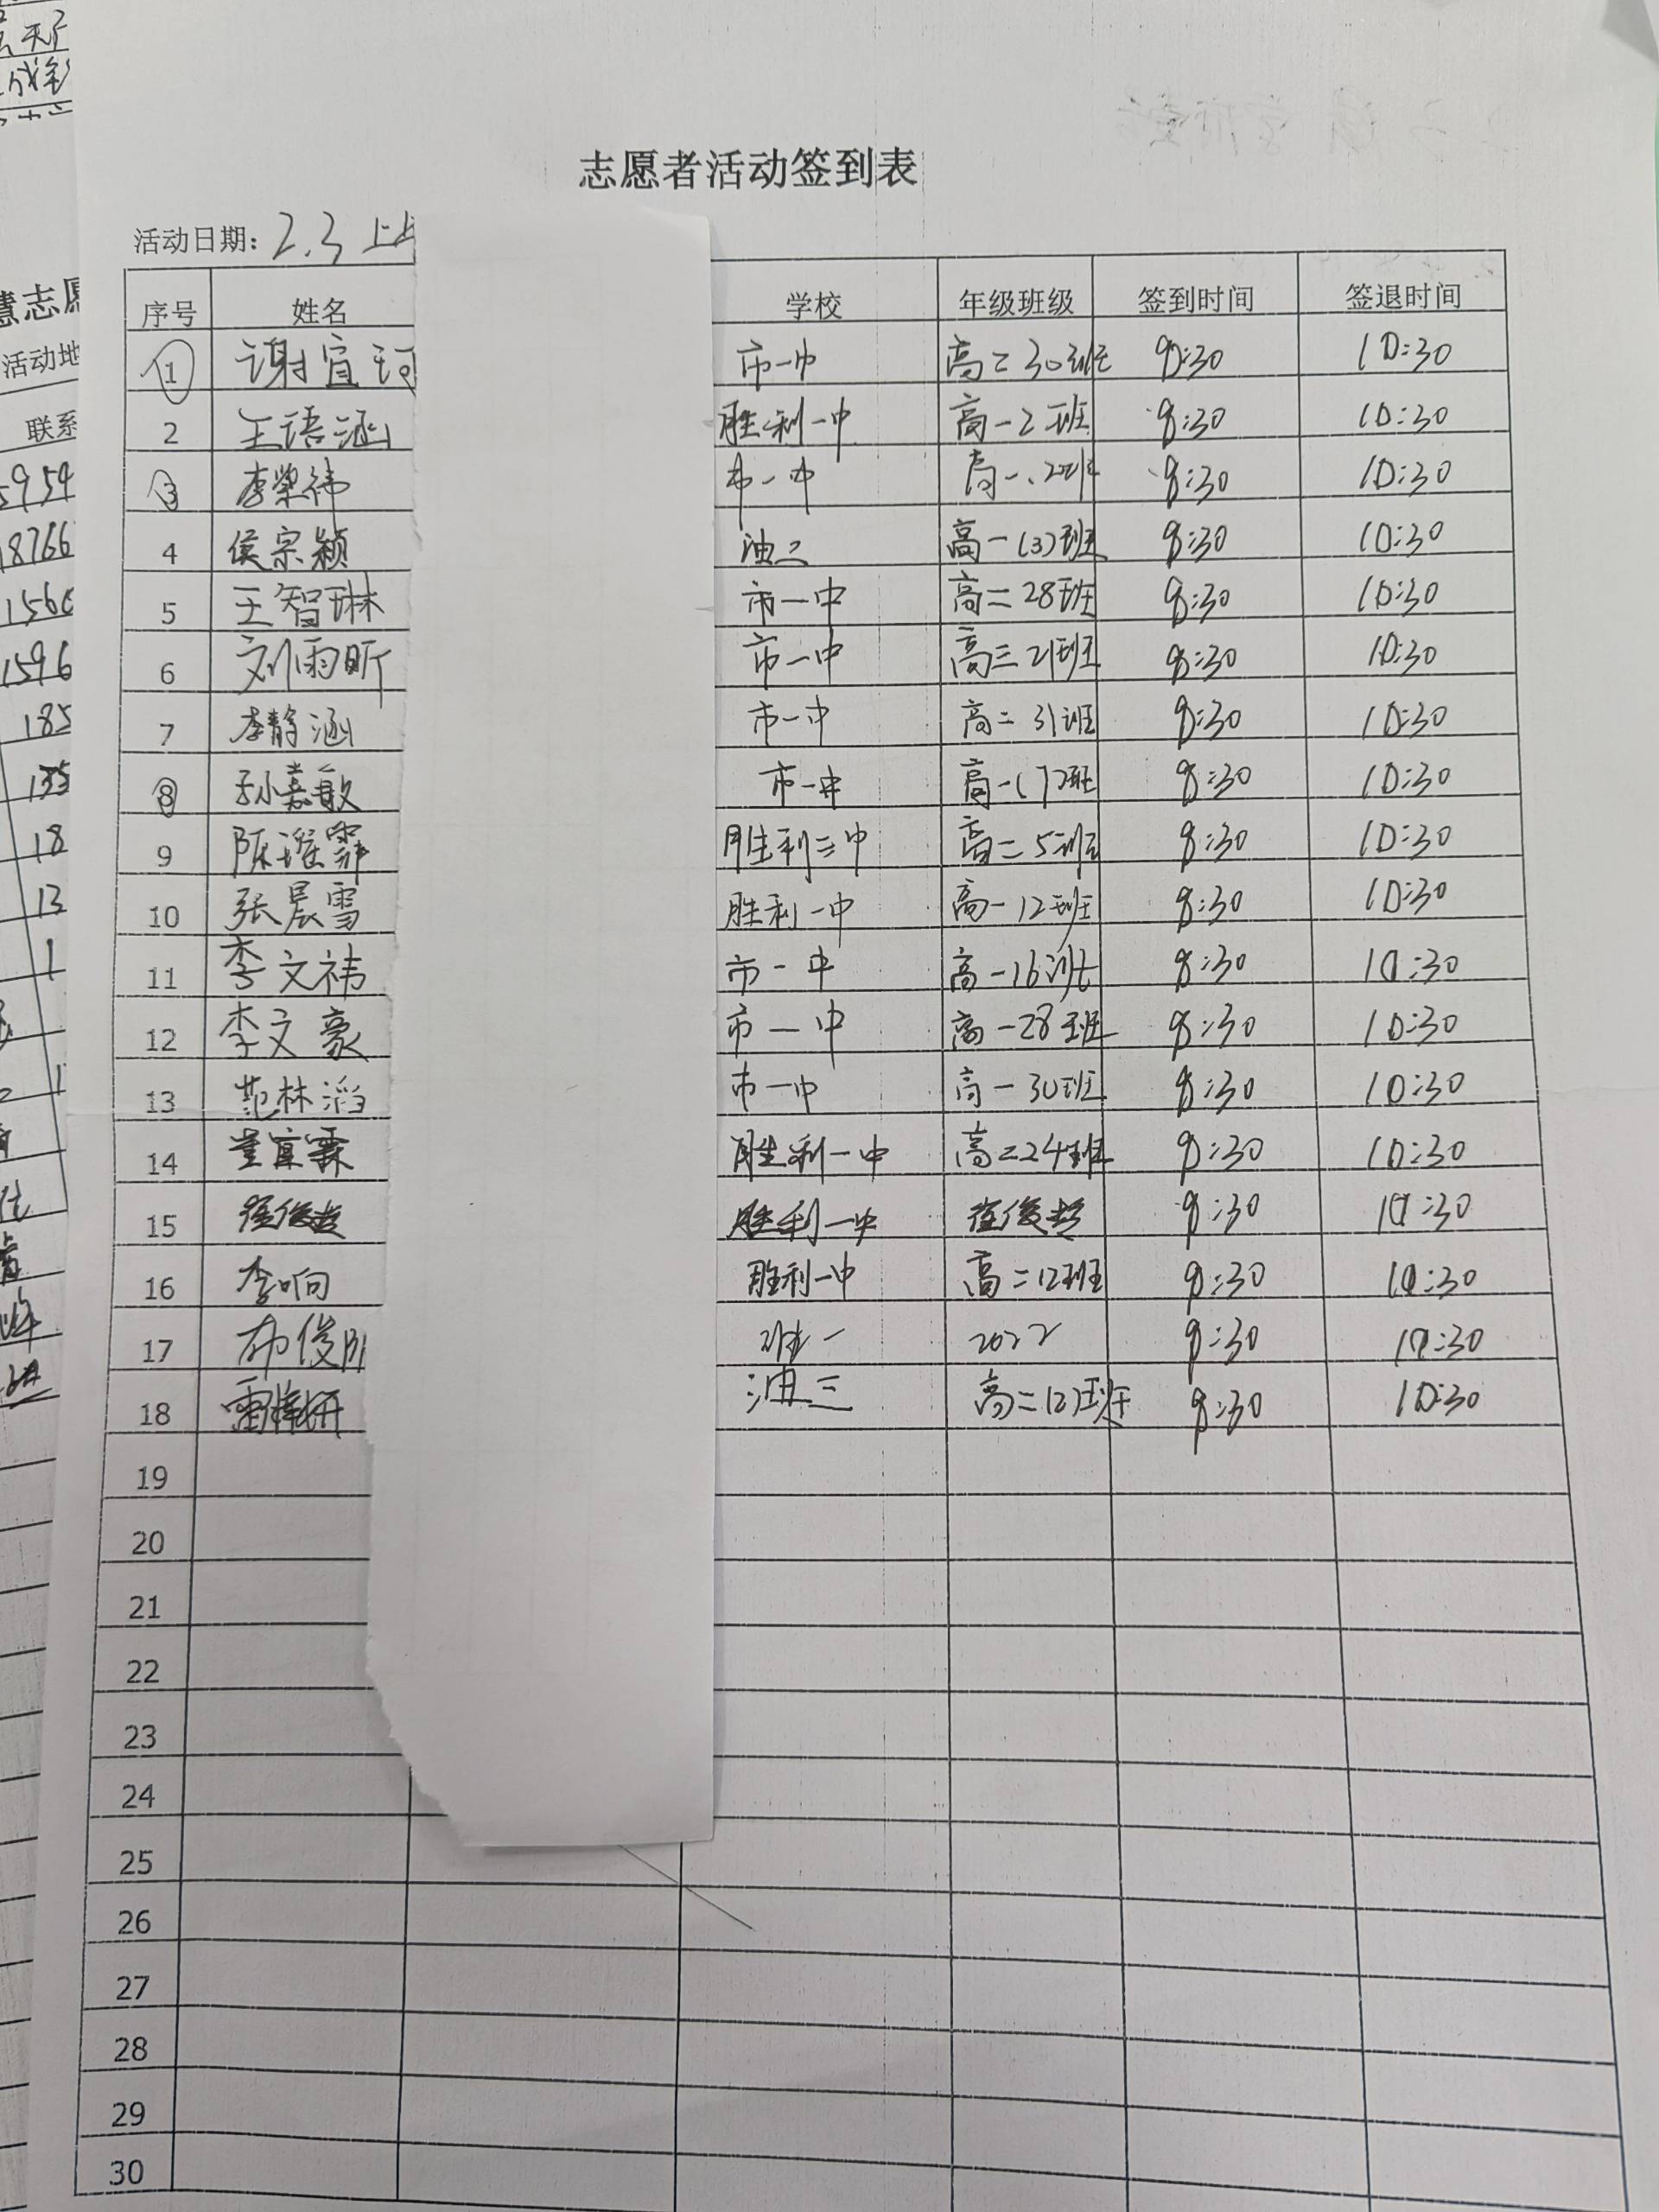 志愿者活动签到表
活动日期: 2.3 上
序号 姓名 学校 年级班级 签到时间 签退时间
1 谢宜珂 市一中 高二30班 8:30 10:30
2 王语涵 胜利一中 高一2班 8:30 10:30
3 李荣祎 市一中 高一.20班 8:30 10:30
4 侯宗颖 油二 高一(3)班 8:30 10:30
5 王智琳 市一中 高二28班 8:30 10:30
6 刘雨昕 市一中 高三21班 8:30 10:30
7 李静涵 市一中 高二31班 8:30 10:30
8 孙嘉敏 市一中 高一17班 8:30 10:30
9 陈瑶霏 胜利三中 高二5班 8:30 10:30
10 张晨雪 胜利一中 高一12班 8:30 10:30
11 李文祎 市一中 高一16班 8:30 10:30
12 李文豪 市一中 高一28班 8:30 10:30
13 范林滔 市一中 高一30班 8:30 10:30
14 董宜霖 胜利一中 高二24班 8:30 10:30
15 崔俊哲 胜利一中 崔俊哲 8:30 10:30
16 李响 胜利一中 高二12班 8:30 10:30
17 俊 胜一 2022 8:30 10:30
18 雷 妍 油三 高二12班 8:30 10:30
19
20
21
22
23
24
25
26
27
28
29
30
志愿
活动地
联系
5954
18766
156
1596
185
135
18
13
1